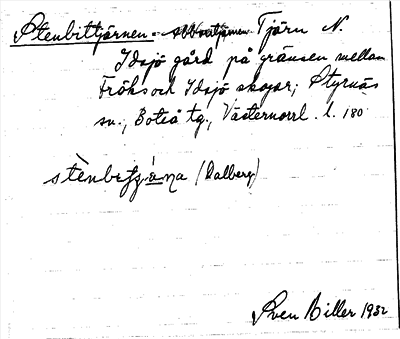 Stenbittjärnen - Tjärn N.
Idsjö gård på gränsen mellan
Fröks och Idsjö skogar; Styrnäs
sn., Boteå tg., Västernorrl. l. 180
(Dalberg)
Sven Biller 1932